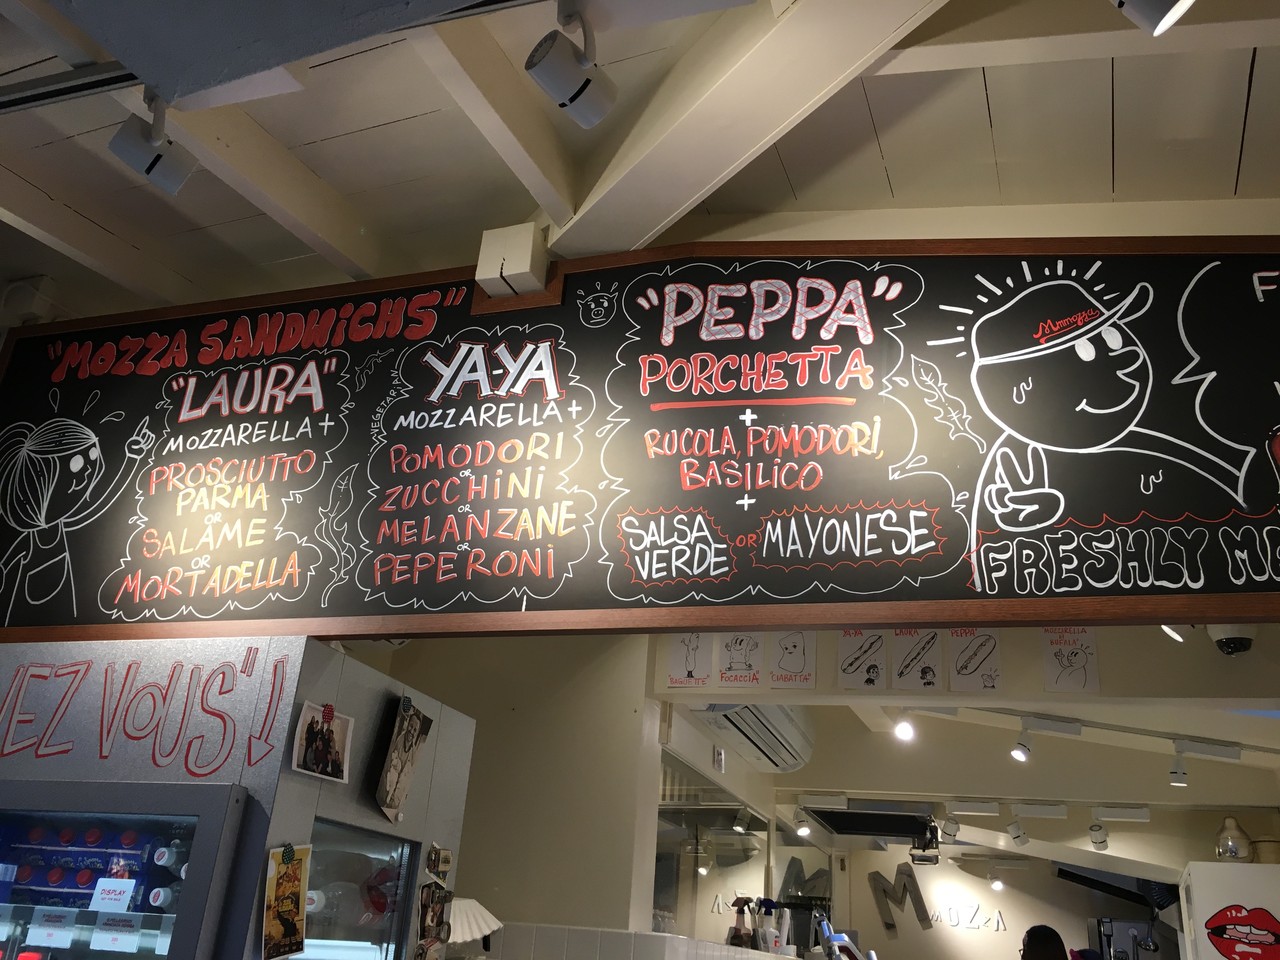 "MOZZA SANDWiCHS"
"LAURA"
MOZZARELLA +
PROSCIUTTO
PARMA
OR
SALAME
OR
MORTADELLA
VEGETARIAN
YA-YA
MOZZARELLA +
POMODORI
OR
ZUCCHINI
OR
MELANZANE
OR
PEPERONI
"PEPPA"
PORCHETTA
+
RUCOLA, POMODORI,
BASILICO
+
SALSA
VERDE
OR
MAYONESE
Mmmozza
F
FRESHLY M
EZ VOUS"
"BAGUETTE"
FOCACCIA
"CIABATTA"
YA-YA
LAURA
PEPPA
DISPLAY
MmOZZA